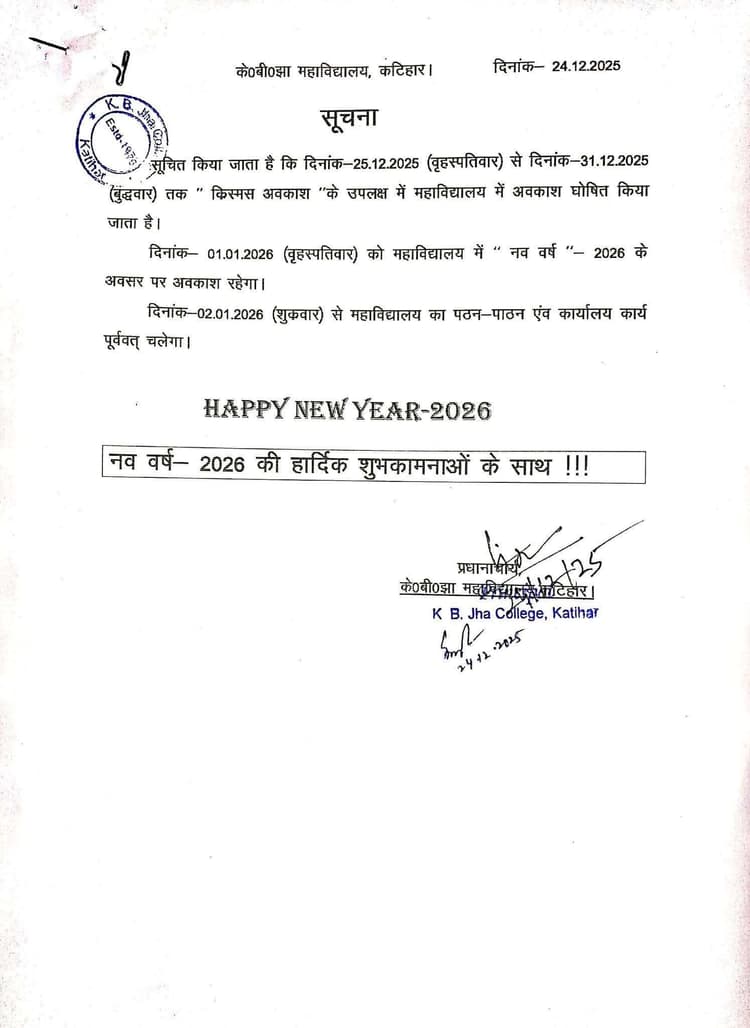 के0बी0झा महाविद्यालय, कटिहार। दिनांक– 24.12.2025
K. B. Jha Col
Estd-1976
Katihar
सूचना
सूचित किया जाता है कि दिनांक–25.12.2025 (वृहस्पतिवार) से दिनांक–31.12.2025
(बुद्धवार) तक " क्रिस्मस अवकाश "के उपलक्ष में महाविद्यालय में अवकाश घोषित किया
जाता है।
दिनांक– 01.01.2026 (वृहस्पतिवार) को महाविद्यालय में " नव वर्ष "– 2026 के
अवसर पर अवकाश रहेगा।
दिनांक–02.01.2026 (शुक्रवार) से महाविद्यालय का पठन–पाठन एंव कार्यालय कार्य
पूर्ववत् चलेगा।
HAPPY NEW YEAR-2026
नव वर्ष– 2026 की हार्दिक शुभकामनाओं के साथ !!!
प्रधानाचार्य
के0बी0झा महाविद्यालय, कटिहार।
K B. Jha College, Katihar
24.12.2025